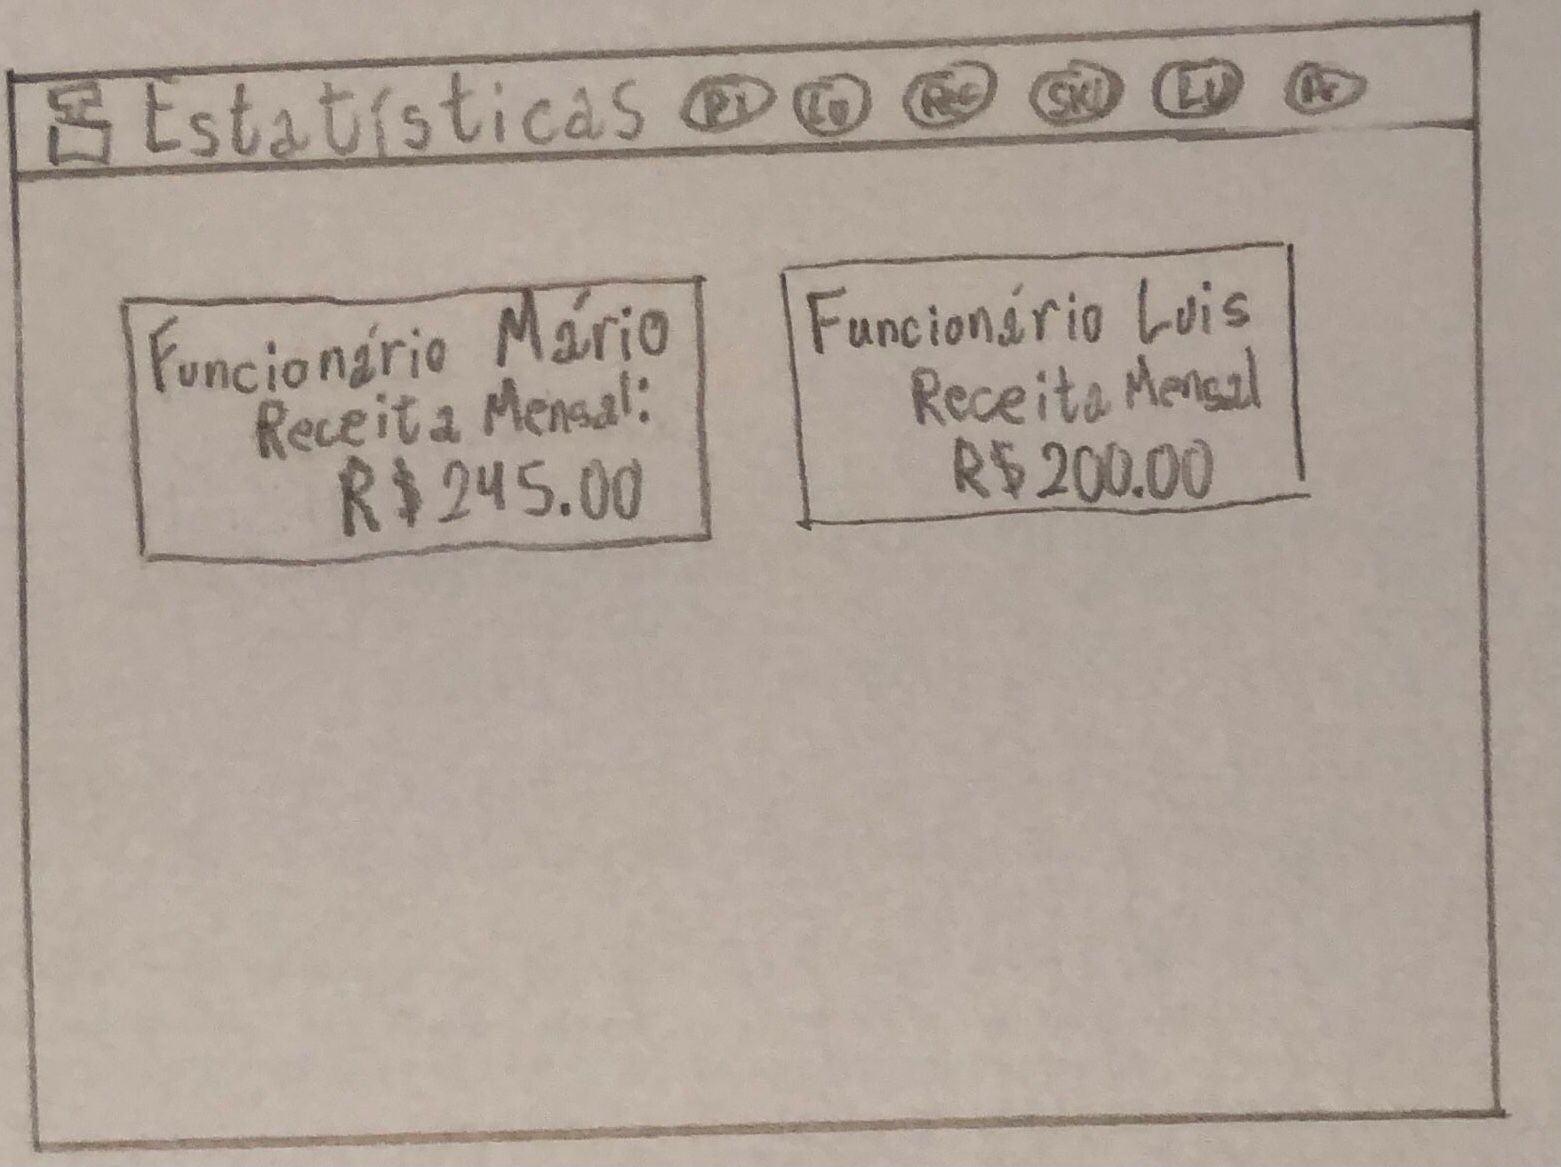 Estatísticas
Funcionário Mário
Receita Mensal:
R$ 245.00
Funcionário Luis
Receita Mensal
R$ 200.00